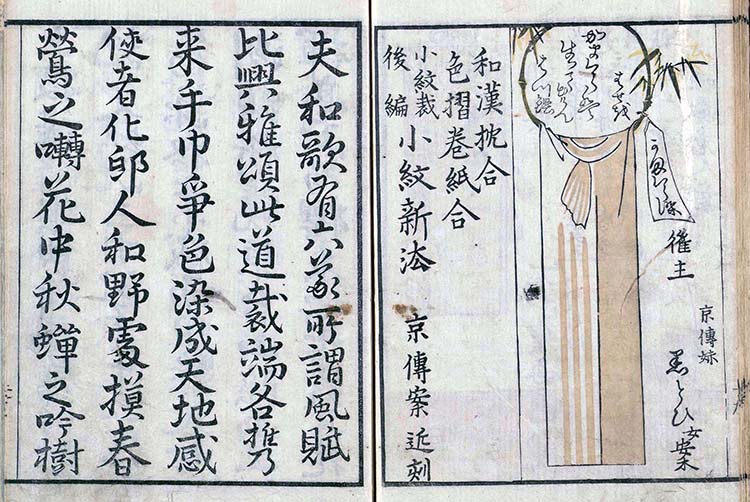 京傳妹
黒とひ女案
催主
はせを
かまくらを
生ていてけん
はつ鰹
和漢枕合
色摺巻紙合
小紋裁
後編
小紋新法
京傳案
近刻
夫和歌有六義所謂風賦
比興雅頌此道裁端各携
来手巾爭色染成天地感
使者化人和野處摸春
鶯之囀花中秋蟬之吟樹